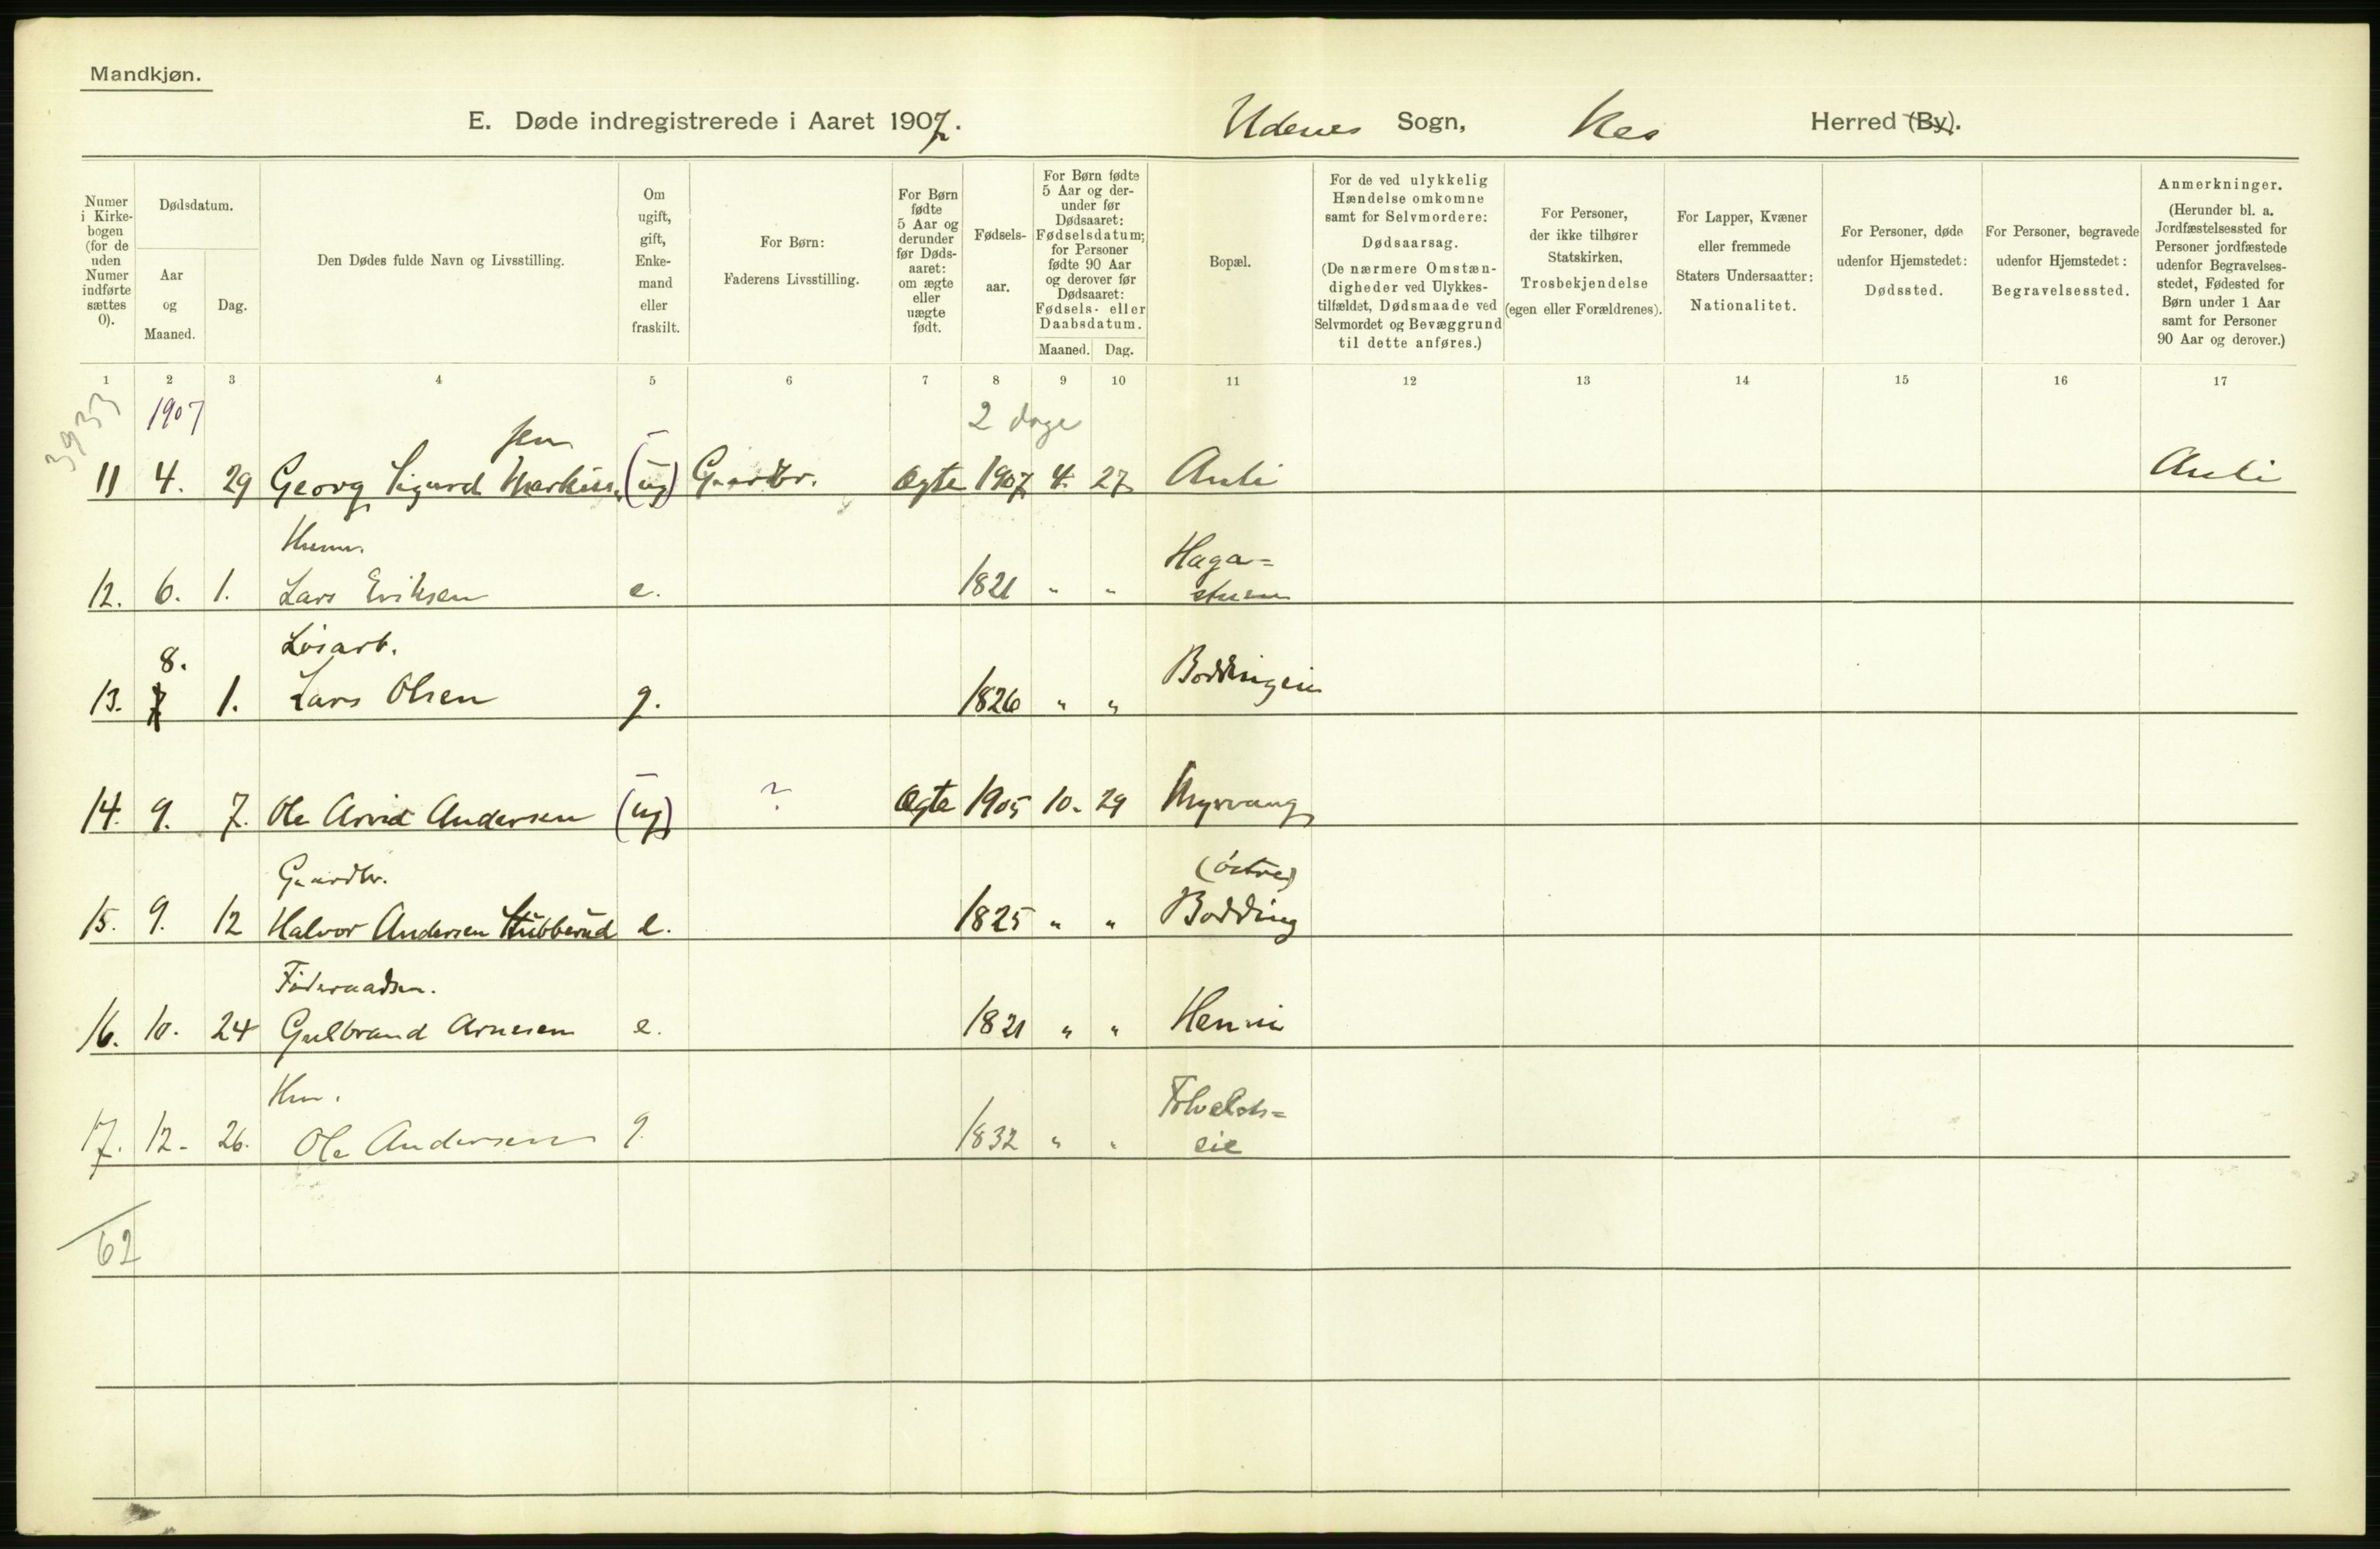 Mandkjøn.
E. Døde indregistrerede i Aaret 1907. Udenes Sogn, Nes Herred (By).
Numer i Kirkebogen (for de uden Numer indførte sættes 0).
Dødsdatum.
Aar og Maaned.
Dag.
Den Dødes fulde Navn og Livsstilling.
Om ugift, gift, Enkemand eller fraskilt.
For Børn: Faderens Livsstilling.
For Børn fødte 5 Aar og derunder før Dødsaaret: om ægte eller uægte født.
Fødselsaar.
For Børn fødte 5 Aar og derunder før Dødsaaret: Fødselsdatum; for Personer fødte 90 Aar og derover før Dødsaaret: Fødsels- eller Daabsdatum.
Maaned. Dag.
Bopæl.
For de ved ulykkelig Hændelse omkomne samt for Selvmordere: Dødsaarsag. (De nærmere Omstændigheder ved Ulykkestilfældet, Dødsmaade ved Selvmordet og Bevæggrund til dette anføres.)
For Personer, der ikke tilhører Statskirken, Trosbekjendelse (egen eller Forældrenes).
For Lapper, Kvæner eller fremmede Staters Undersaatter: Nationalitet.
For Personer, døde udenfor Hjemstedet: Dødssted.
For Personer, begravede udenfor Hjemstedet: Begravelsessted.
Anmerkninger. (Herunder bl. a. Jordfæstelsessted for Personer jordfæstede udenfor Begravelsesstedet, Fødested for Børn under 1 Aar samt for Personer 90 Aar og derover.)
1 2 3 4 5 6 7 8 9 10 11 12 13 14 15 16 17
3933
1907 2 dage
sen
11 4. 29 Georg Sigurd Markus (ug) Gaardbr. Ægte 1907 4. 27 Auli Auli
Husm. Haga=
12. 6. 1. Lars Eriksen e. 1821 " " stuen
8. Løsarb.
13. 7 1. Lars Olsen g. 1826 " " Boddingeie
14. 9. 7. Ole Arvid Andersen (ug) ? Ægte 1905 10. 29 Myrvang
Gaardbr. (østre)
15. 9. 12 Halvor Andersen Stubberud e. 1825 " " Bodding
Føderaadsm.
16. 10. 24 Gulbrand Arnesen e. 1821 " " Henni
Hm.
17. 12. 26. Ole Andersen g. 1832 " " eie
62